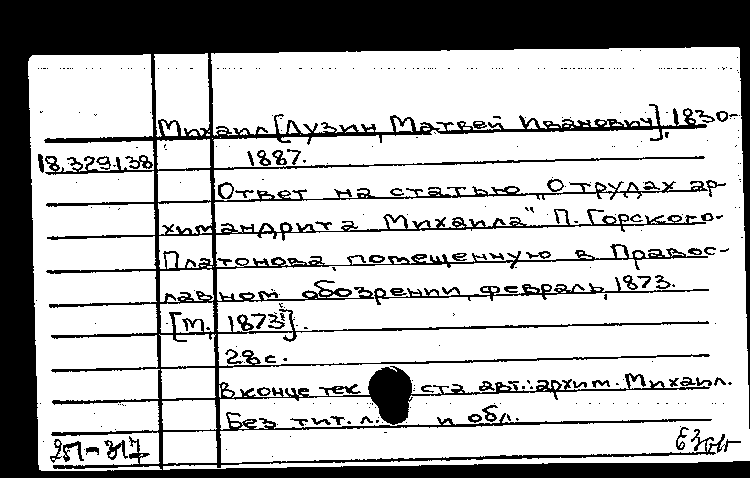 Михаил [Лузин, Матвей Иванович], 1830-
18.329.1.38 1887.
Ответ на статью „О трудах ар-
химандрита Михаила" П. Горского-
Платонова, помещенную в Правос-
лавном обозрении, февраль, 1873.
[М., 1873].
28 с.
В конце текста авт.: архим. Михаил.
Без тит. л. и обл.
251-317